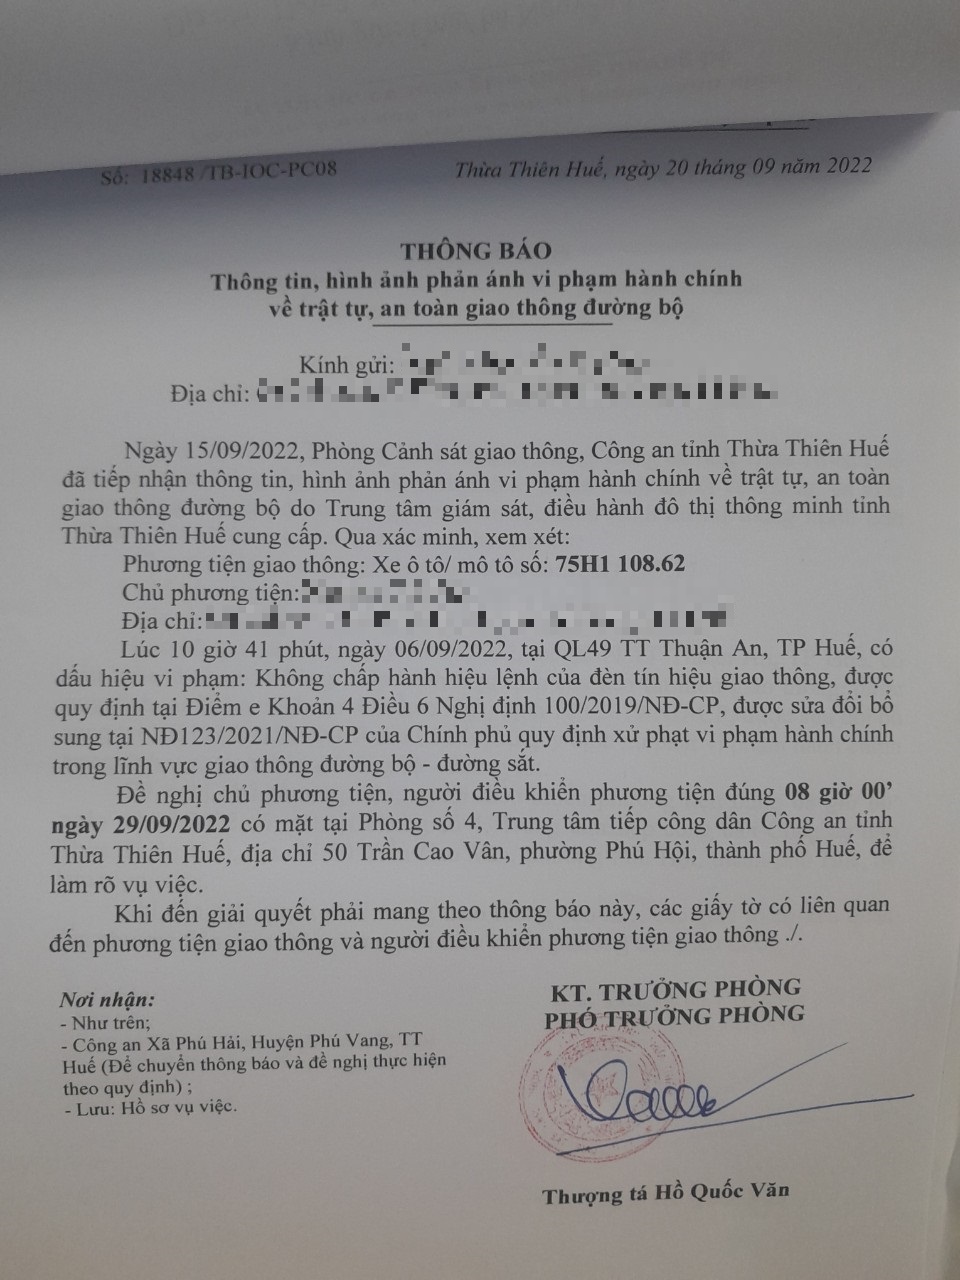 Số: 18848 /TB-IOC-PC08
Thừa Thiên Huế, ngày 20 tháng 09 năm 2022
THÔNG BÁO
Thông tin, hình ảnh phản ánh vi phạm hành chính
về trật tự, an toàn giao thông đường bộ
Kính gửi:
Địa chỉ:
Ngày 15/09/2022, Phòng Cảnh sát giao thông, Công an tỉnh Thừa Thiên Huế
đã tiếp nhận thông tin, hình ảnh phản ánh vi phạm hành chính về trật tự, an toàn
giao thông đường bộ do Trung tâm giám sát, điều hành đô thị thông minh tỉnh
Thừa Thiên Huế cung cấp. Qua xác minh, xem xét:
Phương tiện giao thông: Xe ô tô/ mô tô số: 75H1 108.62
Chủ phương tiện:
Địa chỉ:
Lúc 10 giờ 41 phút, ngày 06/09/2022, tại QL49 TT Thuận An, TP Huế, có
dấu hiệu vi phạm: Không chấp hành hiệu lệnh của đèn tín hiệu giao thông, được
quy định tại Điểm e Khoản 4 Điều 6 Nghị định 100/2019/NĐ-CP, được sửa đổi bổ
sung tại NĐ123/2021/NĐ-CP của Chính phủ quy định xử phạt vi phạm hành chính
trong lĩnh vực giao thông đường bộ - đường sắt.
Đề nghị chủ phương tiện, người điều khiển phương tiện đúng 08 giờ 00’
ngày 29/09/2022 có mặt tại Phòng số 4, Trung tâm tiếp công dân Công an tỉnh
Thừa Thiên Huế, địa chỉ 50 Trần Cao Vân, phường Phú Hội, thành phố Huế, để
làm rõ vụ việc.
Khi đến giải quyết phải mang theo thông báo này, các giấy tờ có liên quan
đến phương tiện giao thông và người điều khiển phương tiện giao thông ./.
Nơi nhận:
- Như trên;
- Công an Xã Phú Hải, Huyện Phú Vang, TT
Huế (Để chuyển thông báo và đề nghị thực hiện
theo quy định) ;
- Lưu: Hồ sơ vụ việc.
KT. TRƯỞNG PHÒNG
PHÓ TRƯỞNG PHÒNG
Thượng tá Hồ Quốc Văn